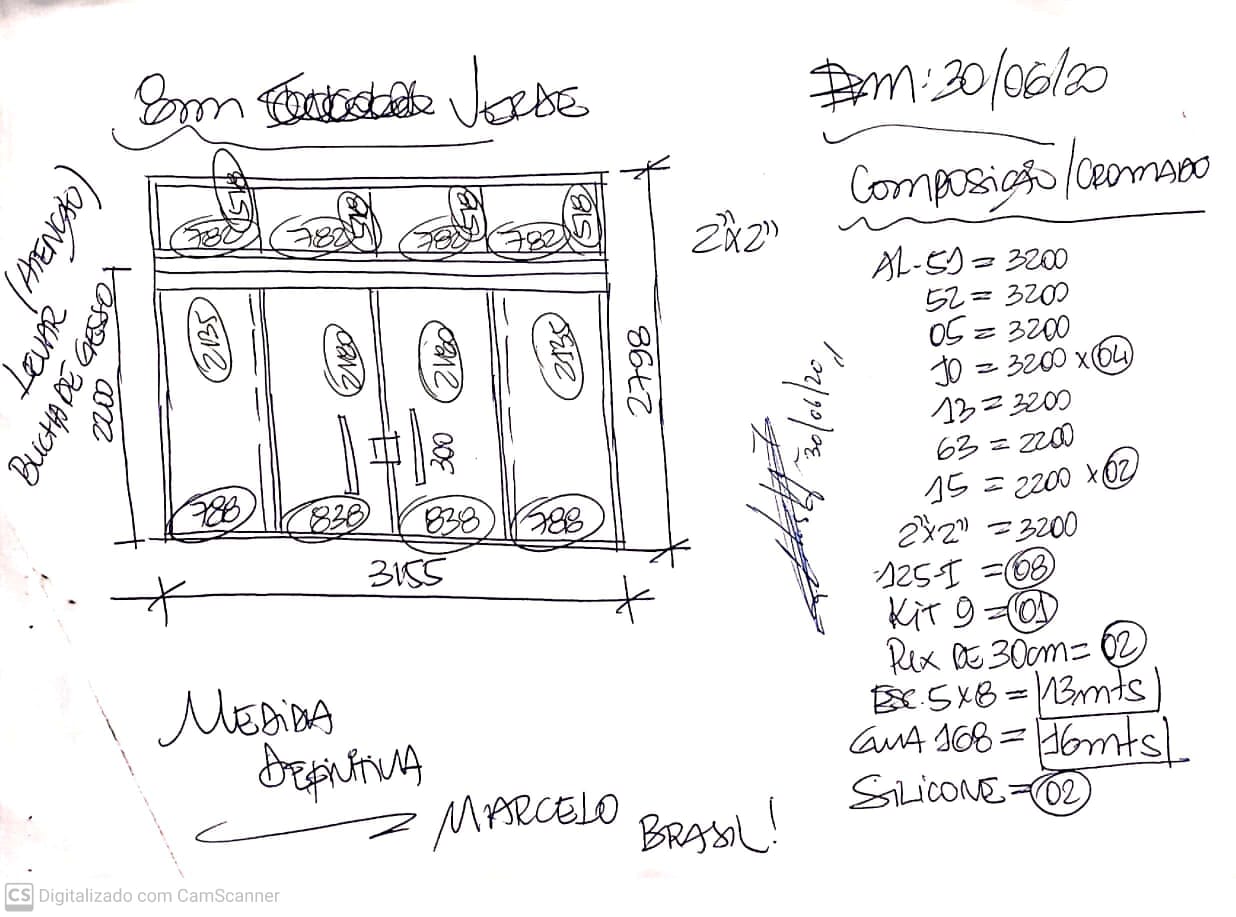 8mm VERDE
Em: 30/06/20
Composição/CROMADO
LEVAR (ATENÇÃO)
BUCHA DE GESSO
518 518 518 518
782 782 782 782
2"x2"
2200
2135 2180 2180 2135
300
2798
788 838 838 788
3155
30/06/20
AL-51 = 3200
52 = 3200
05 = 3200
10 = 3200 x 04
13 = 3200
63 = 2200
15 = 2200 x 02
2"x2" = 3200
125-I = 08
KiT 9 = 01
Pux DE 30cm = 02
Esc. 5x8 = 13mts
GUA 168 = 16mts
SiLiCONE = 02
MEDiDA
DEFiNiTiVA
MARCELO BRASiL!
CS Digitalizado com CamScanner